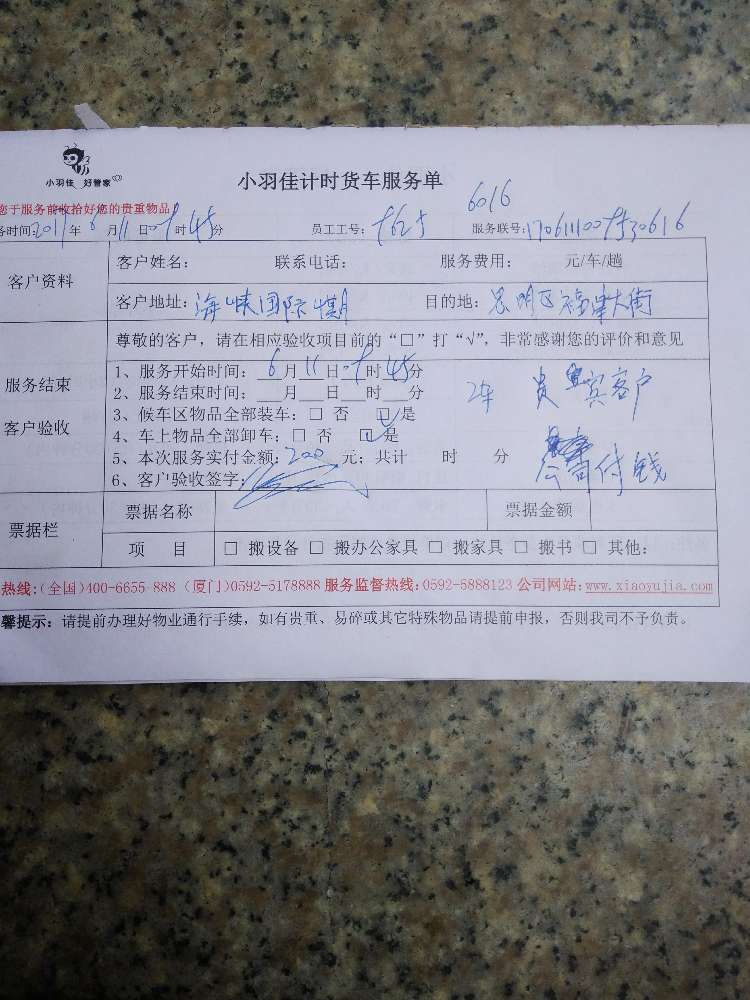 小羽佳 好管家
小羽佳计时货车服务单
您于服务前收拾好您的贵重物品
6016
务时间:2017年6月11日07时45分 员工工号: 服务联号:
客户资料
客户姓名: 联系电话: 服务费用: 元/车/趟
客户地址:海峡国际 目的地: 区 大街
尊敬的客户，请在相应验收项目前的“□”打“√”，非常感谢您的评价和意见
服务结束
客户验收
1、服务开始时间: 6月11日 时45分
2、服务结束时间: 月 日 时 分
2车 贵宾客户
3、候车区物品全部装车: □ 否 □√是
4、车上物品全部卸车: □ 否 □√是
5、本次服务实付金额: 200 元; 共计 时 分
公司付钱
6、客户验收签字:
票据栏
票据名称 票据金额
项 目 □ 搬设备 □ 搬办公家具 □ 搬家具 □ 搬书 □ 其他:
热线:(全国)400-6655-888 (厦门)0592-5178888 服务监督热线:0592-5888123 公司网站:www.xiaoyujia.com
馨提示: 请提前办理好物业通行手续，如有贵重、易碎或其它特殊物品请提前申报，否则我司不予负责。